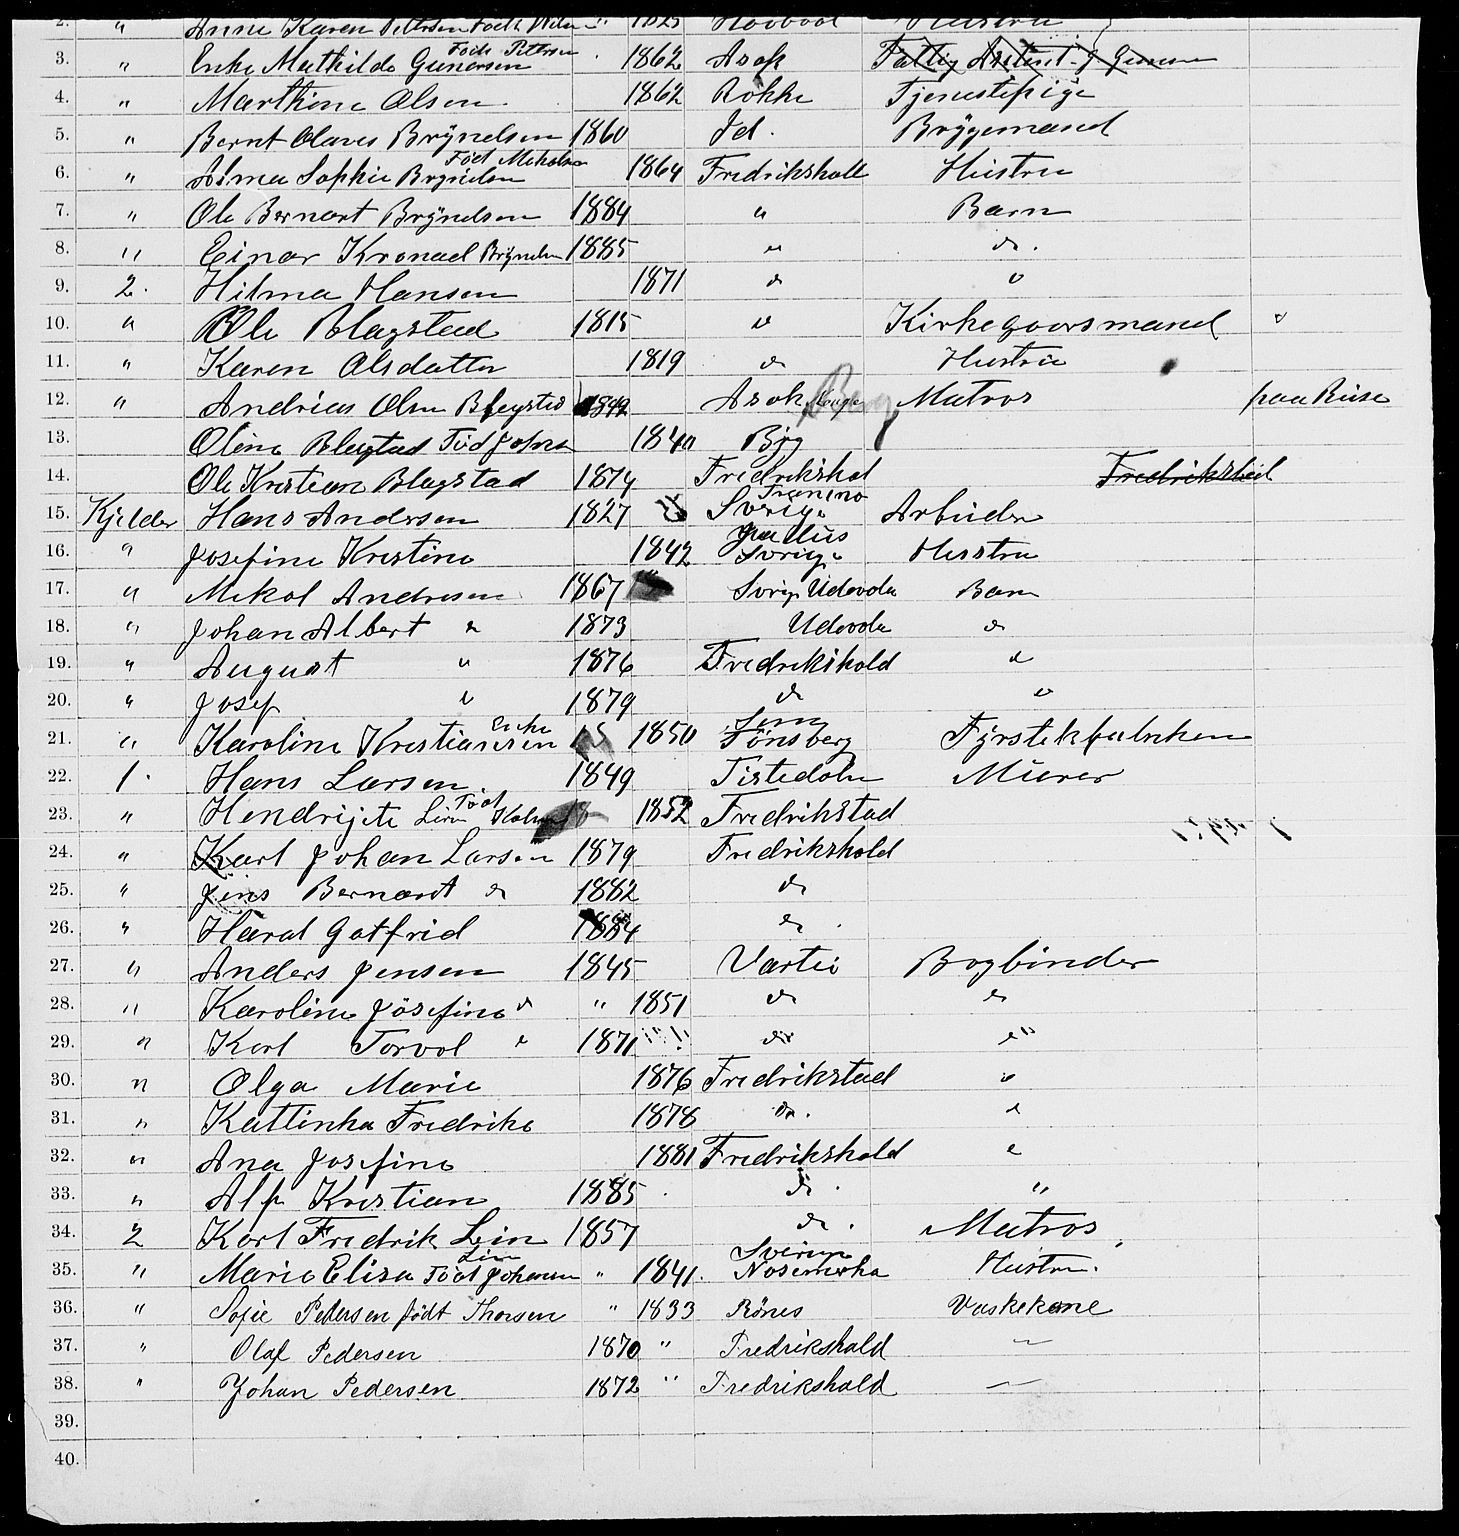 2. " Anne Karen Pettersen Født " 1825 Hustru
3. " Enke Mathilde Gunersen Føde Pettersen 1862 Asak Fattig
4. " Marthine Olsen 1862 Rokke Tjenestepige
5. " Bernt Olaves Brynelsen 1860 Id. Bryggemand
6. " Alma Sophie Brynelsen Født Mekelsen 1864 Fredrikshall Hustru
7. " Ole Bernart Brynelsen 1884 " Barn
8. " Einar Kronad Brynelsen 1885 " do.
9. 2. Hilma Hansen 1871 do "
10. " Ole Blagstad 1815 " Kirkegaarsmand
11. " Karen Olsdatter 1819 do Hustru
12. " Andrias Olsen Blagstad 1842 Asak Berg Matros paa Reise
13. Oline Blagstad Fød Johns 1840 Bÿg
14. Ole Kristian Blagstad 1874 Fredrikshal Fredrikshal
15. Kjelder Hans Andersen 1827 Sverige Arbeider
16. " Josefine Kristine 1842 Sverige Hustru
17. " Mekal Andresen 1867 Sverige Udevda Barn
18. " Johan Albert " 1873 Udevda do
19. " August " 1876 Fredrikshald "
20. " Josef " 1879 do "
21. " Karoline Kristiansen Enke 1850 Sem Tønsberg Fyrstikfabriken
22. 1. Hans Larsen 1849 Tistedalen Murer
23. " Hendrijete Født 1852 Fredrikstad
24. " Karl Johan Larsen 1879 Fredrikshald
25. " Jens Bernardt do 1882 do
26. " Haral Gotfrid 1884 do.
27. " Anders Jensen 1845 Vartei Bogbinder
28. " Karoline Josefine do " 1851 do do
29. " Karl Torvol " 1871 do "
30. " Olga Marie 1876 Fredrikstad "
31. " Kattinka Fredrike 1878 do. "
32. " Ana Josefine 1881 Fredrikshald "
33. " Alf Kristian 1885 do. "
34. 2 Karl Fredrik Lein 1857 do. Matros
35. " Marie Elisa Lein Født Johansen " 1841. Sverige Nosemarka Hustru.
36. " Sofie Pedersen født Thorsen " 1833 Rönes Vaskekone
37. " Olaf Pedersen 1870 " Fredrikshald —
38. " Johan Pedersen 1872 " Fredrikshald —
39.
40.